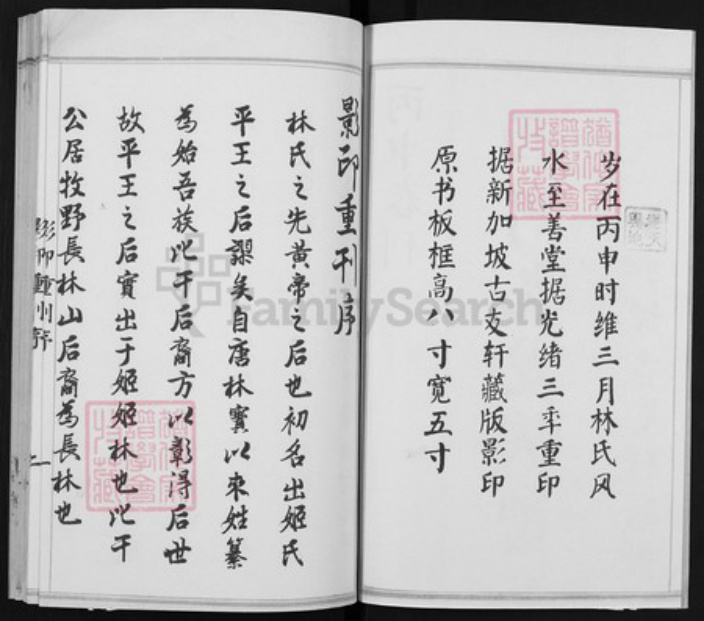 岁在丙申时维三月林氏风
水至善堂据光绪三年重印
据新加坡古友轩藏版影印
原书板框高八寸宽五寸
影印重刊序
林氏之先黄帝之后也初名出姬氏
平王之后謬矣自唐林寳以来姓纂
為始吾族比干后裔方以彰得后世
故平王之后實出于姬姬林也比干
公居牧野長林山后裔為長林也
影印重刊序
二
FamilySearch